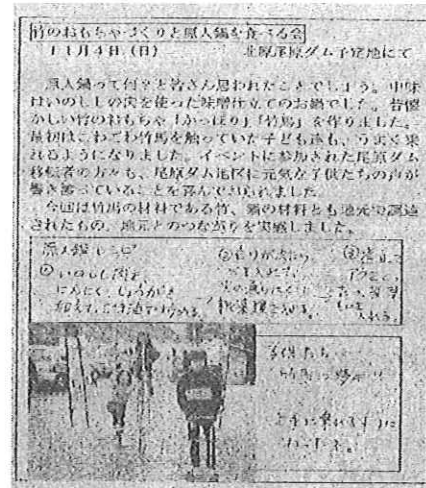 竹のおもちゃづくりと原人鍋を食べる会
11月4日（日）　　　北原尾原ダム予定地にて
原人鍋って何？と皆さん思われたことでしょう。中味
はいのししの肉を使った味噌仕立てのお鍋でした。昔懐
かしい竹のおもちゃ「かっぽり」「竹馬」を作りました。
最初はこわごわ竹馬を触っていた子ども達も、うまく乗
れるようになりました。イベントに参加された尾原ダム
移転者の方々も、尾原ダム地区に元気な子供たちの声が
響き渡っていることを喜んでおられました。
今回は竹馬の材料である竹、鍋の材料とも地元で調達
されたもの、地元とのつながりを実感しました。
原人鍋レシピ
①いのしし肉を
にんにく、しょうがを
加えて、ごま油で炒める
②
③
子供たち
上手に乗れるように
なったよ。